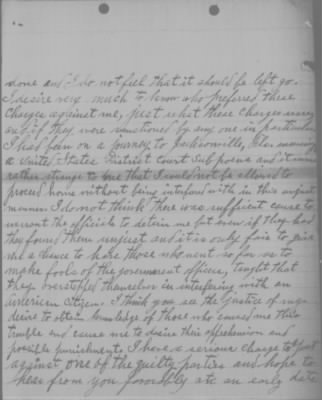 done and I do not feel that it should be left go.
I desire very much to know who preferred these
charges against me, just what these charges were,
and if they were sanctioned by any one in particular.
I had been on a journey to Jacksonville, Fla.
a United States District court Subpoena and it seems
rather strange to me that I would not be allowed to
proceed home without being interfered with in this unjust
manner. I do not think there was sufficient cause to
warrant the officials to detain me but even if they had
they found them unjust and it is only fair to give
me a chance to have those who went so far as to
make fools of the government officers, taught that
they overstepped themselves in interfering with an
American Citizen. I think you see the justice of my
desire to obtain knowledge of those who caused me this
trouble and cause me to desire their apprehension and
possible punishment. I have a serious charge to
against one of the guilty parties and hope to
hear from you favorably at an early date